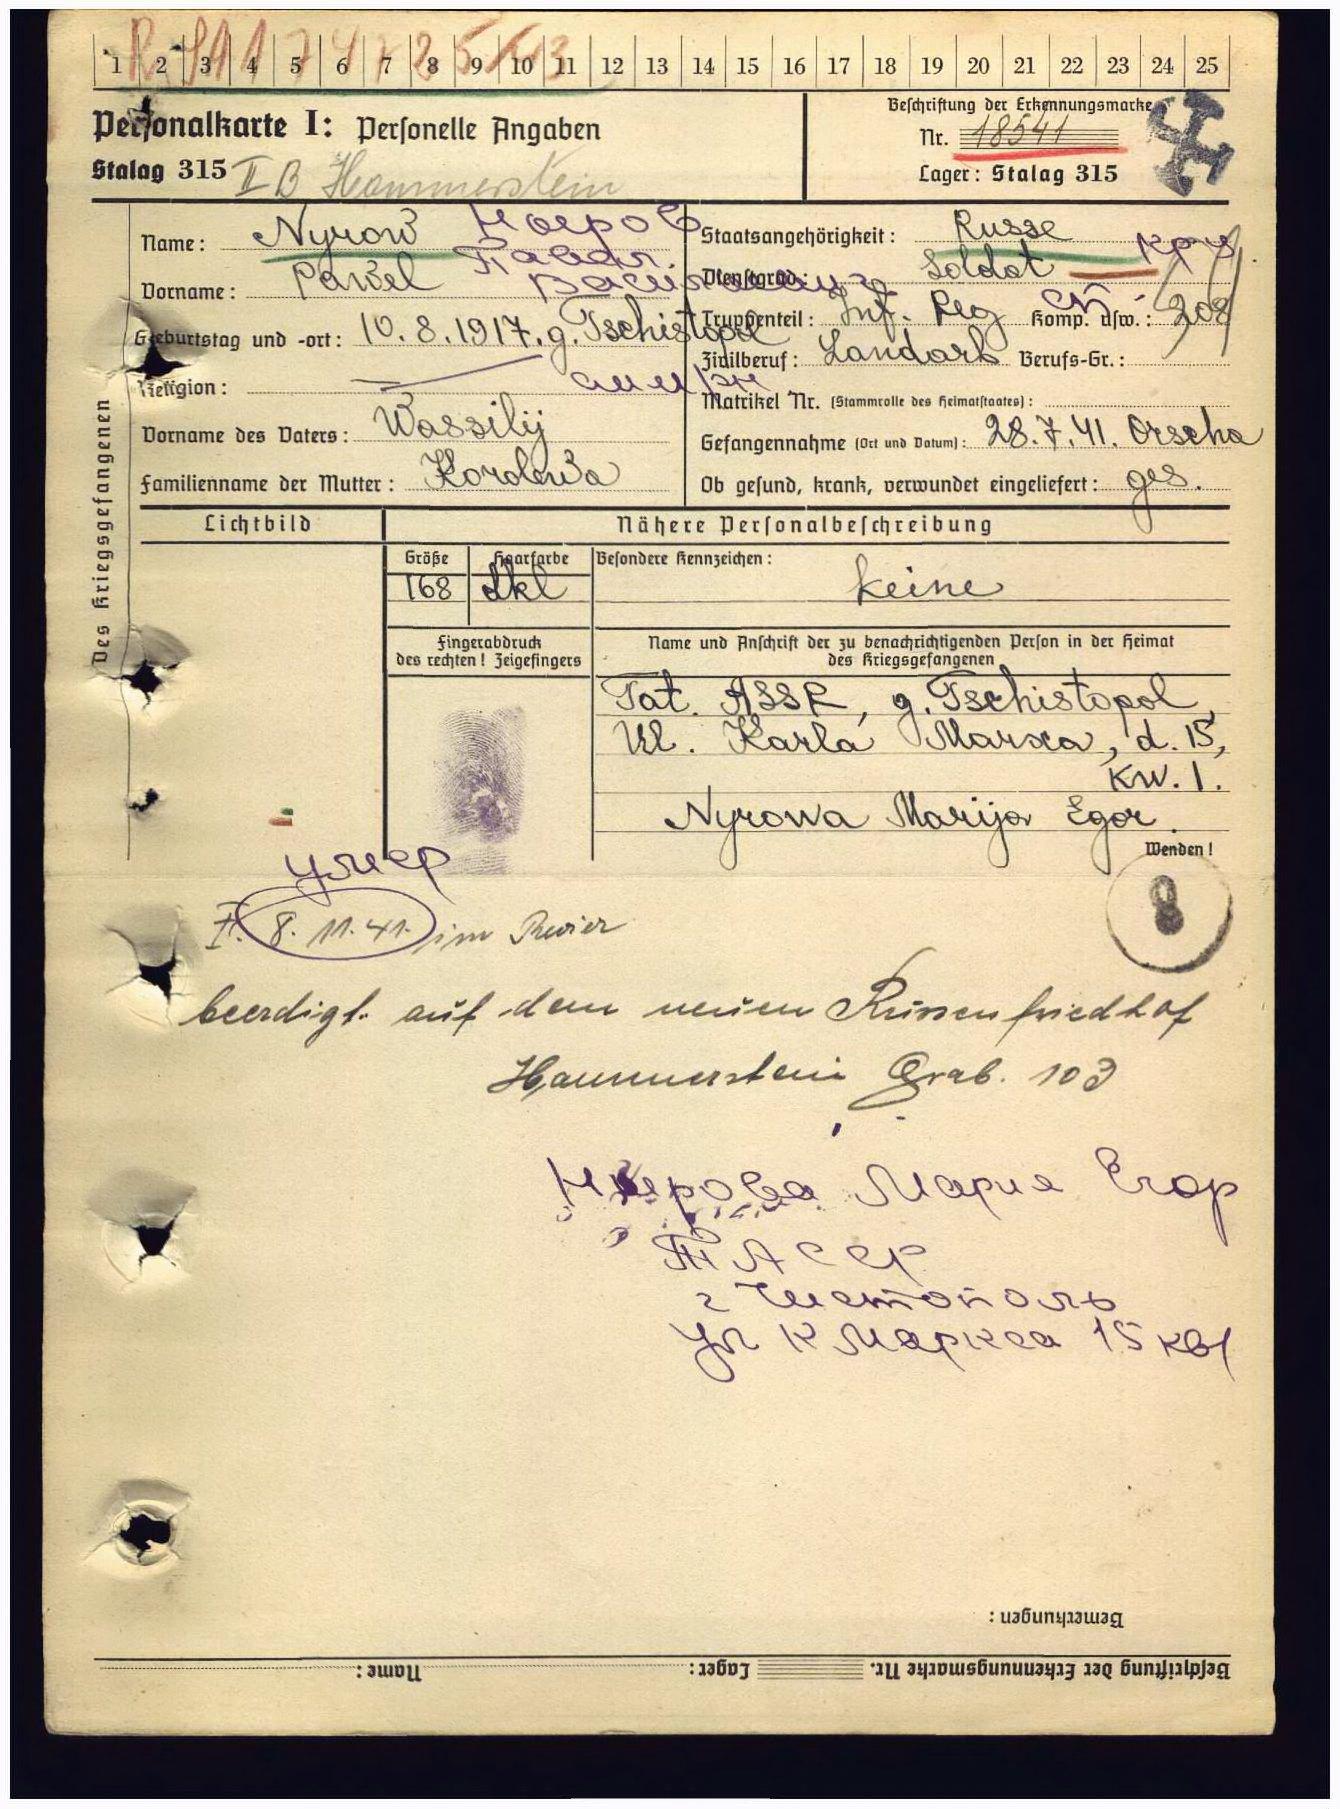 1 2 3 4 5 6 7 8 9 10 11 12 13 14 15 16 17 18 19 20 21 22 23 24 25
Personalkarte I: Personelle Angaben
Stalag 315 II B Hammerstein
Beschriftung der Erkennungsmarke
Nr. 18541
Lager: Stalag 315
Des Kriegsgefangenen
Name: Nyrow
Vorname: Pawel Павел
Geburtstag und -ort: 10.8.1917. g. Tschistopol
Religion:
Vorname des Vaters: Wassilij
Familienname der Mutter: Korolewa
Staatsangehörigkeit: Russe
Dienstgrad: Soldat
Truppenteil: Inf. Reg Komp. usw.: 208
Zivilberuf: Landarb Berufs-Gr.:
Matrikel Nr. (Stammrolle des Heimatstaates):
Gefangennahme (Ort und Datum): 28.7.41. Orscha
Ob gesund, krank, verwundet eingeliefert: ges.
Lichtbild
Nähere Personalbeschreibung
Größe Haarfarbe Besondere Kennzeichen:
168 dkl keine
Fingerabdruck
des rechten! Zeigefingers
Name und Anschrift der zu benachrichtigenden Person in der Heimat
des Kriegsgefangenen
Tat. ASSR, g. Tschistopol,
Ul. Karla Marxa, d. 15,
kw. 1.
Nyrowa Marija Egor.
Wenden!
умер
8. 11. 41. im Revier
8
beerdigt auf dem neuen Russenfriedhof
Hammerstein Grab. 103
Нырова Мария Егор
ТАССР
г Чистополь
ул К Маркса 15 кв1
Bemerkungen:
Beschriftung der Erkennungsmarke Nr. Lager: Name: